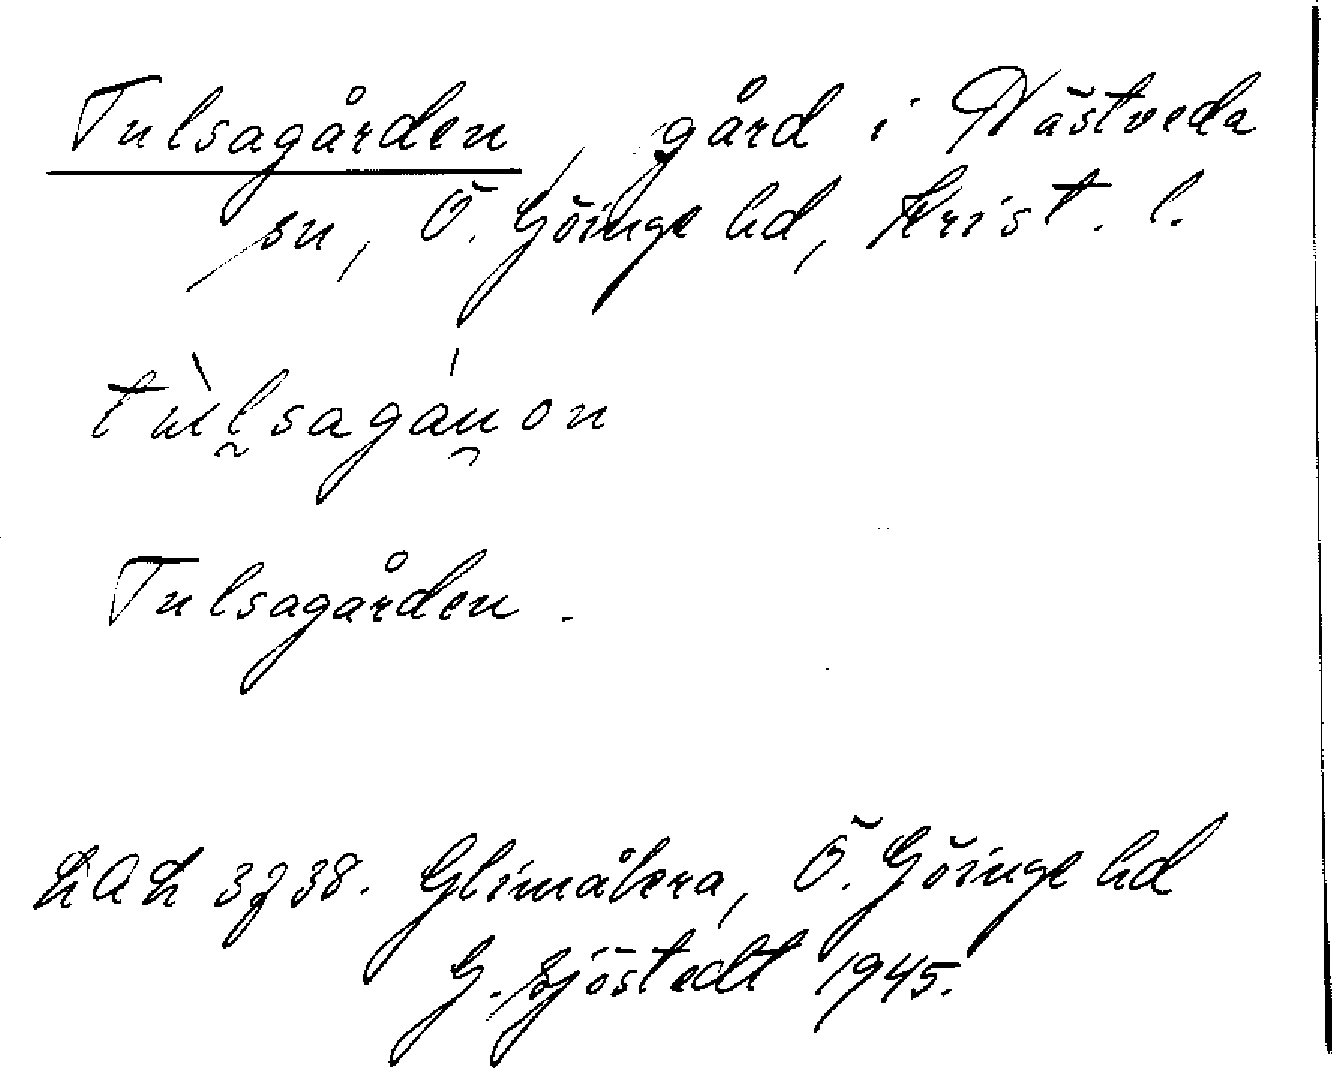 Tulsagården, gård i Nästveda
sn, Ö. Göinge hd, Krist. l.
Tulsagården.
LAL 3738. Glimåkra, Ö. Göinge hd
G. Sjöstedt 1945.